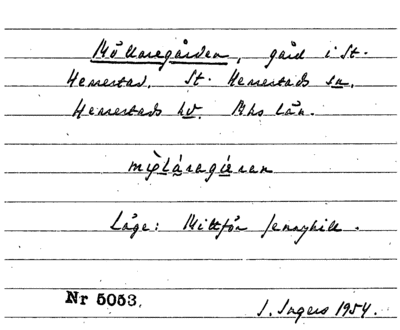 Möllaregården, gård i St.
Hemestad. St. Hemestads sn.
Hemestads hd. Mhs län.
Läge: Mittför Jennyhill.
Nr 5053.
J. Ingers 1954.